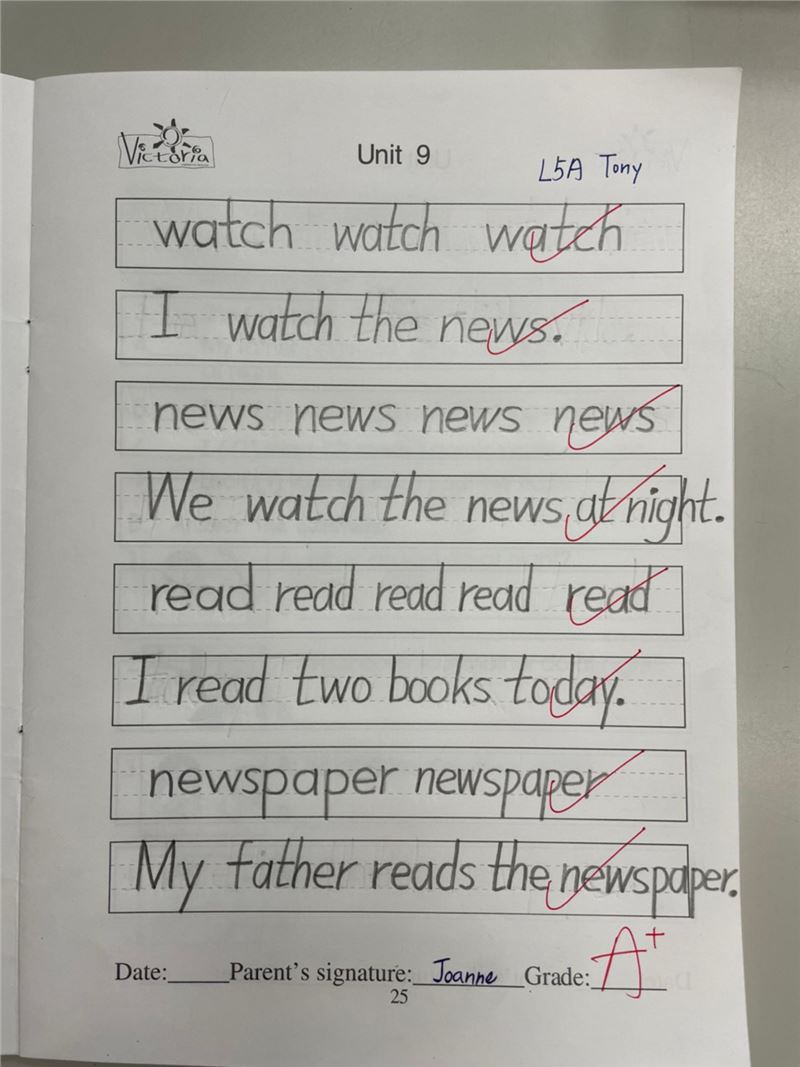 Victoria
Unit 9
L5A Tony
watch watch watch
I watch the news.
news news news news
We watch the news at night.
read read read read read
I read two books today.
newspaper newspaper
My father reads the newspaper.
Date:______Parent's signature: Joanne Grade: A+
25